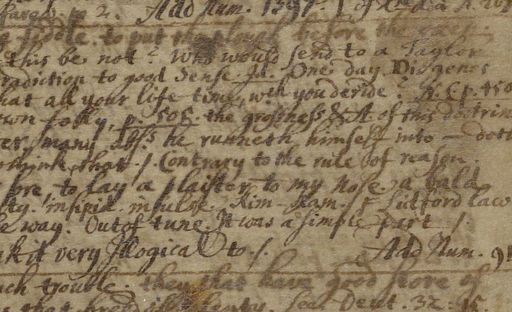 to 2. Add Num. 1397.
a fiddle. to put the plough before the
this be not? Who would send to a Taylor
radiction to good Sense. It. One day Diogenes
hat all your life time, wth you deride? N.C. p. 450
own folly, p. 505. the grossness of this doctrine
many Abss. he runneth himself into — dott
think that / Contrary to the rule of reason.
fore to lay a plaister to my Nose. a bald
insipid impulse. Rim-Ram. Lidford Law
e way. Out of tune. It was a simple part /
k it very Illogical to /. Add Num. 9
uch trouble. they that have good store of
that plenty. See Deut. 32. 15.